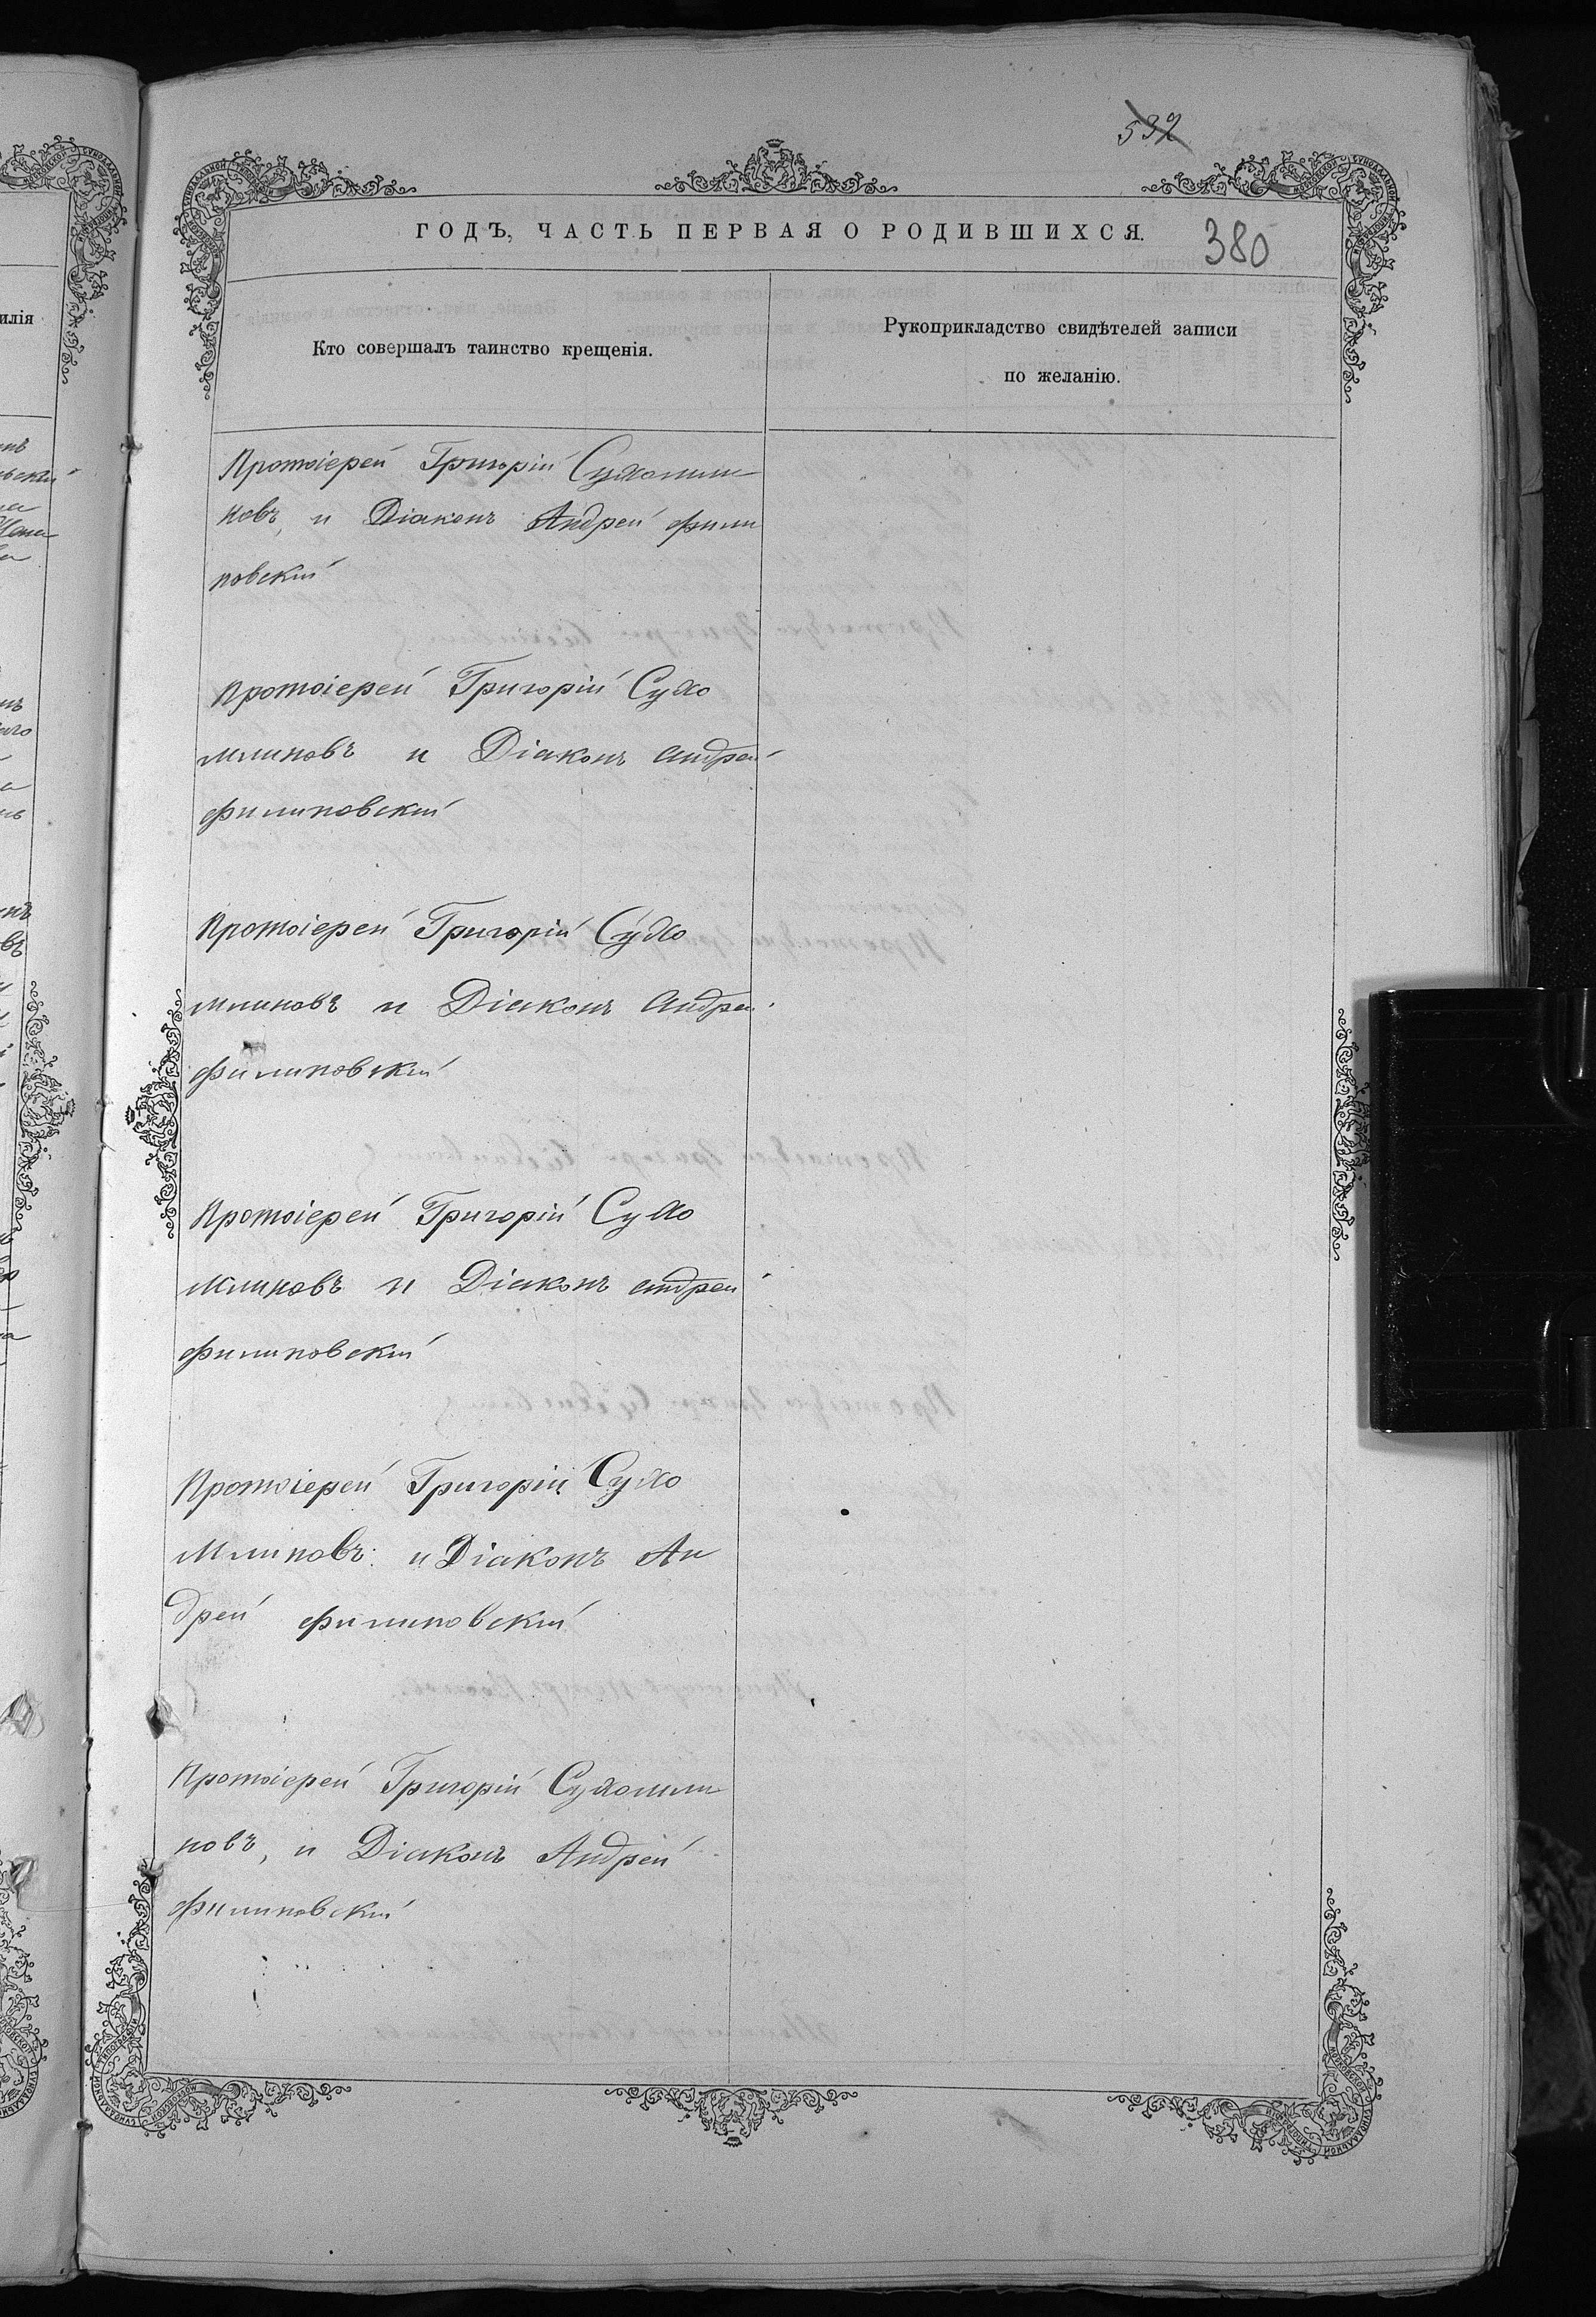 532
ГОДЪ, ЧАСТЬ ПЕРВАЯ О РОДИВШИХСЯ.
380
Кто совершалъ таинство крещенія.
Рукоприкладство свидѣтелей записи
по желанію.
илія
Протоіерей Григорій Сухомли
новъ, и Діаконъ Андрей Фили
повскій
Протоіерей Григорій Сухо
млиновъ и Діаконъ Андрей
Филиповскій
Протоіерей Григорій Сухо
млиновъ и Діаконъ Андрей
Филиповскій
Протоіерей Григорій Сухо
млиновъ и Діаконъ Андрей
Филиповскій
Протоіерей Григорій Сухо
млиновъ и Діаконъ Ан
дрей Филиповскій
Протоіерей Григорій Сухомли
новъ, и Діаконъ Андрей
Филиповскій